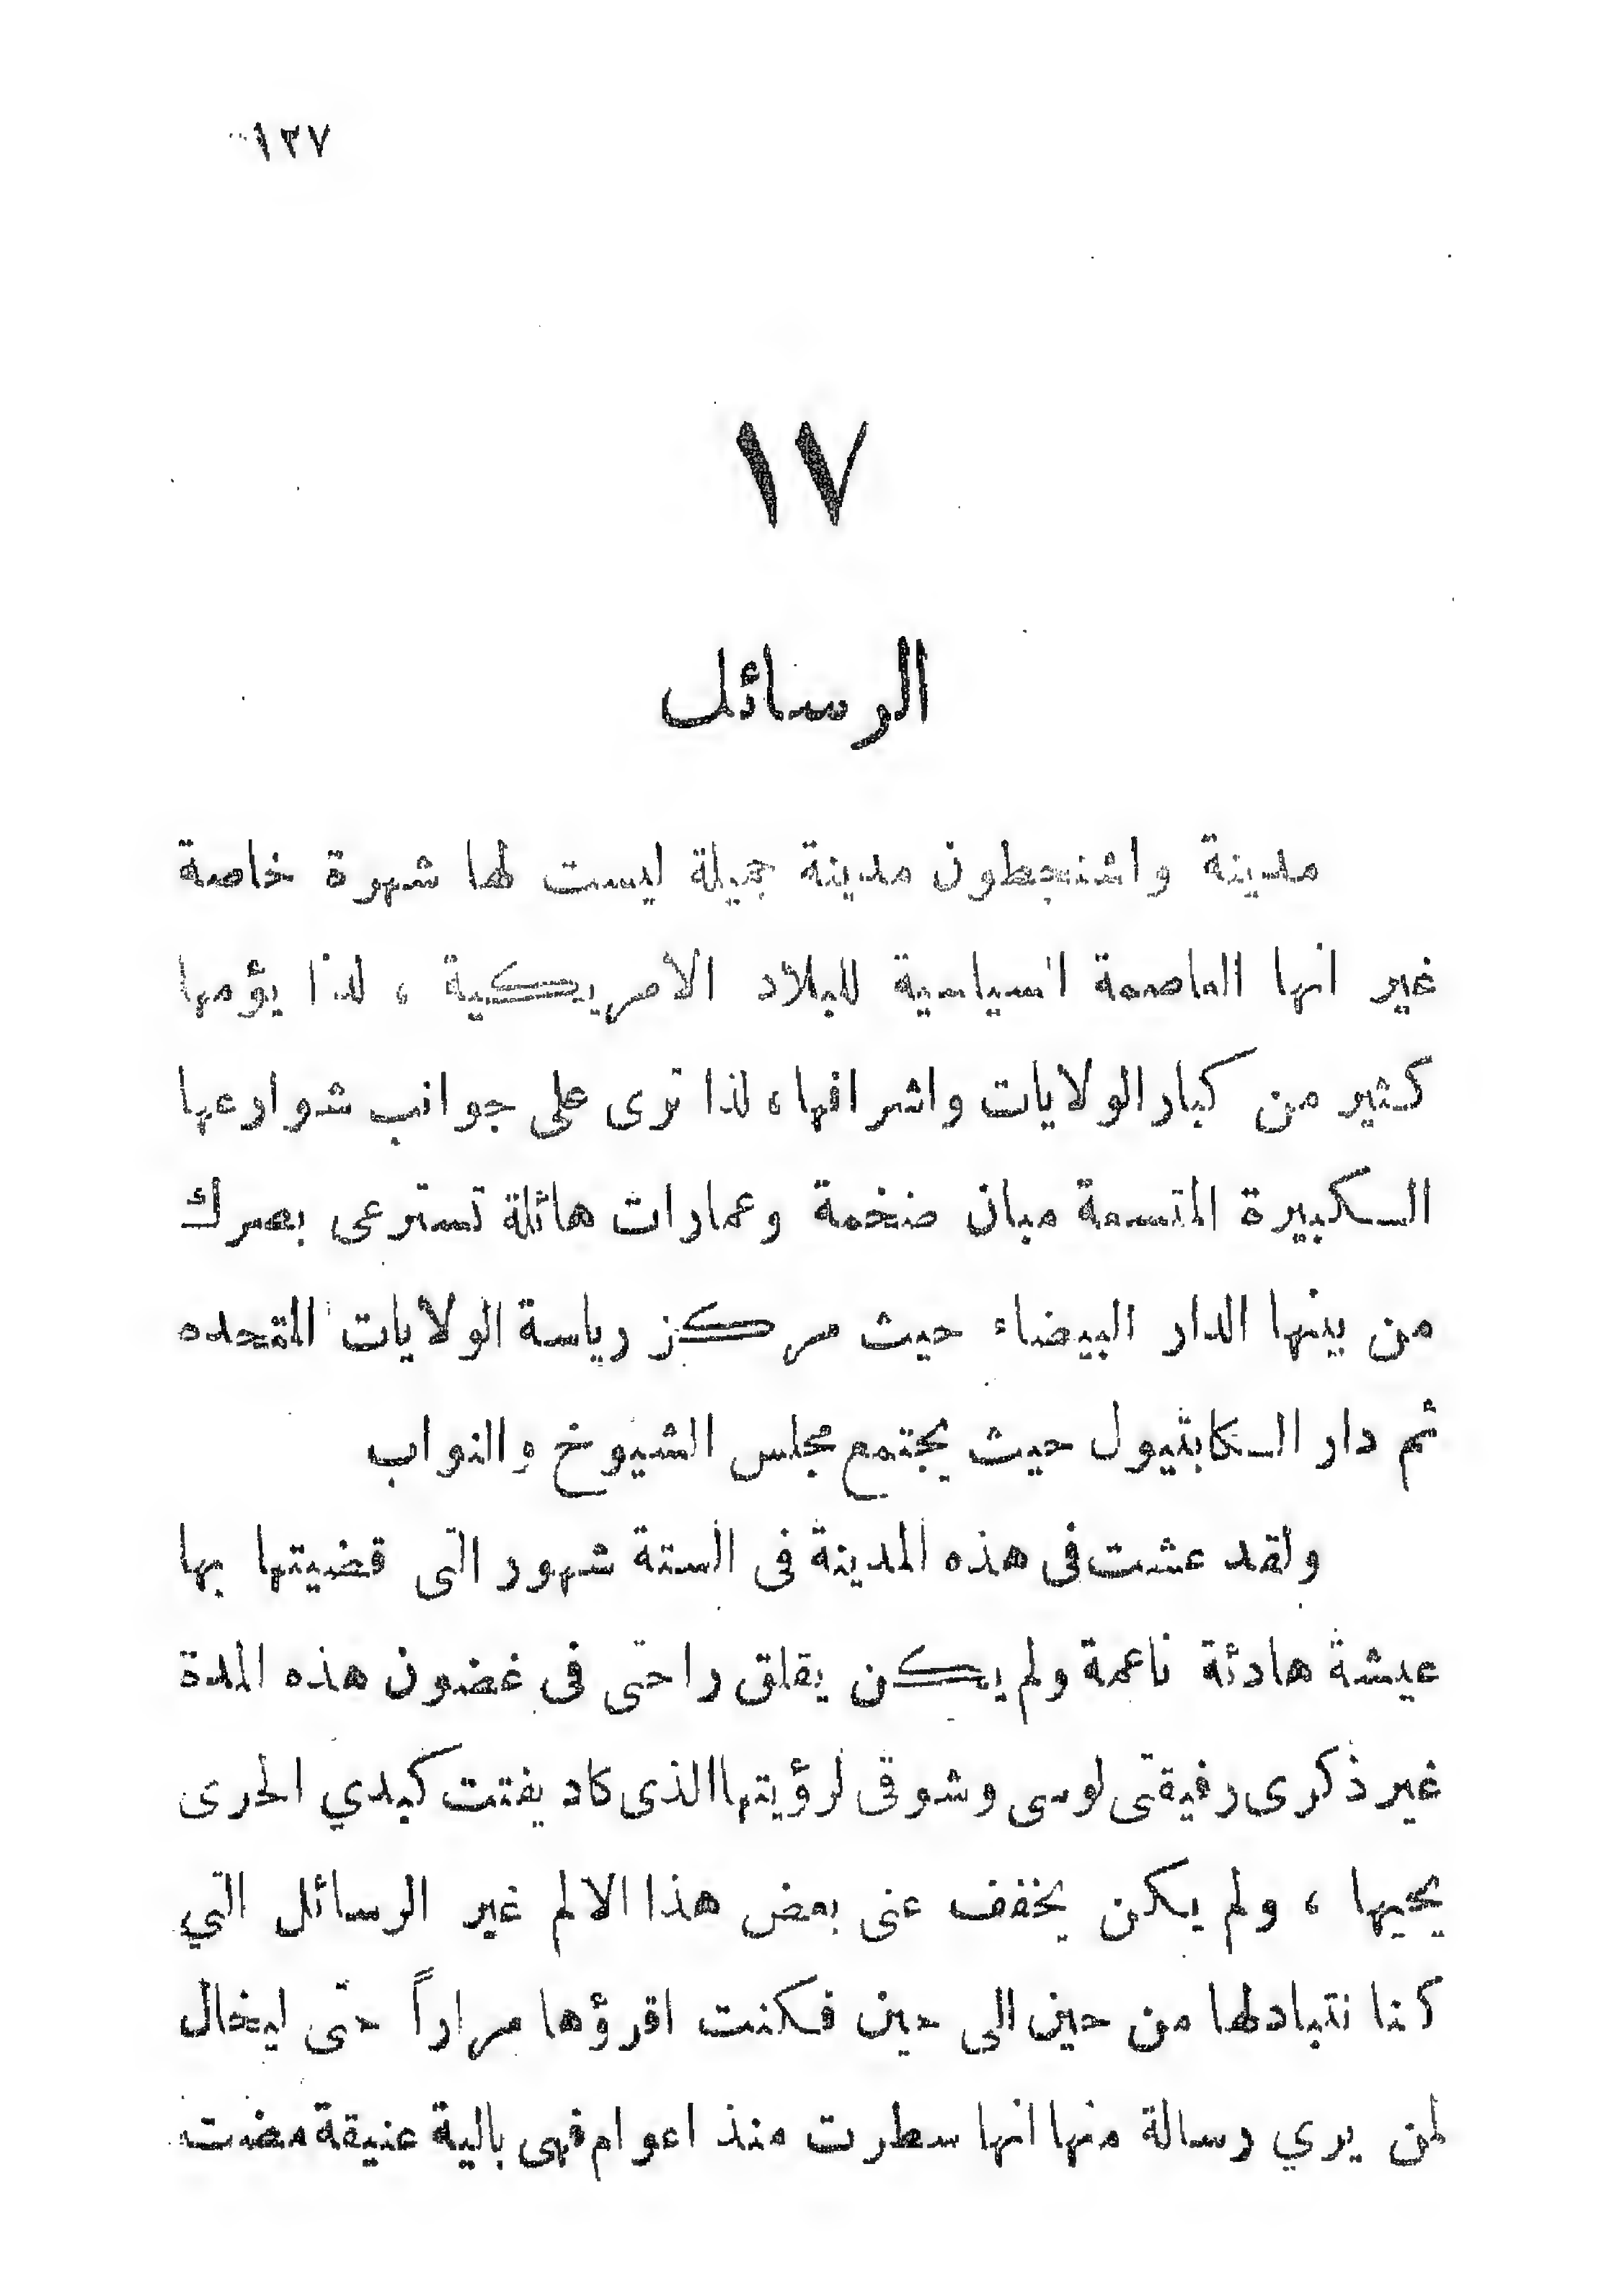 ١٢٧
١٧
الرسائل
مدينة واشنجطون مدينة جميلة ليست لها شهرة خاصة
غير انها العاصمة السياسية للبلاد الامريكية ، لذا يؤمها
كثير من كبار الولايات واشرافها ، لذا ترى على جوانب شوارعها
الكبيرة المتسعة مبان ضخمة وعمارات هائلة تسترعى بصرك
من بينها الدار البيضاء حيث مركز رياسة الولايات المتحده
ثم دار الكابثيول حيث يجتمع مجلس الشيوخ والنواب
ولقد عشت فى هذه المدينة فى الستة شهور التى قضيتها بها
عيشة هادئة ناعمة ولم يكن يقلق راحتى فى غضون هذه المدة
غير ذكرى رفيقتى لوسى وشوقى لرؤيتها الذى كاد يفتت كبدي الحرى
بحبها ، ولم يكن يخفف عنى بعض هذا الالم غير الرسائل التي
كنا نتبادلها من حين الى حين فكنت اقرؤها مراراً حتى ليخال
لمن يري رسالة منها انها سطرت منذ اعوام فهى بالية عتيقة مضت